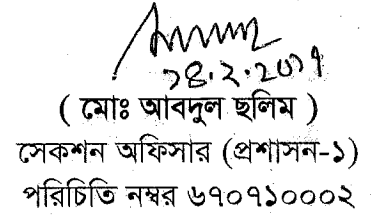 ১৪.২.২০১৭
( মোঃ আবদুল ছলিম )
সেকশন অফিসার (প্রশাসন-১)
পরিচিতি নম্বর ৬৭০৭১০০০২